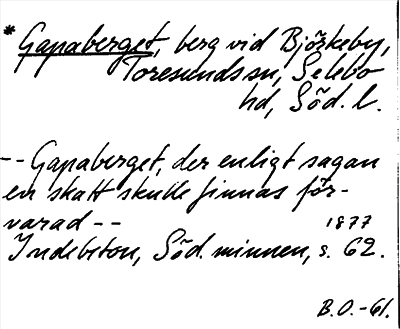 * Gapaberget, berg vid Björkeby,
Toresunds sn, Selebo
hd, Söd. l.
-- Gapaberget, der enligt sagan
en skatt skulle finnas för-
varad --
1877
Indebetou, Söd. minnen, s. 62.
B.O.-61.